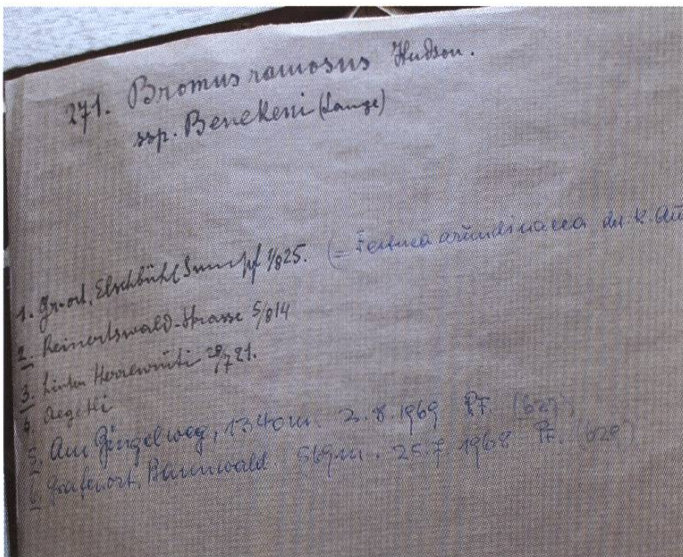 271. Bromus ramosus Hudson.
ssp. Benekeni (Lange)
1. Gr-ort, Elschbühl (Sumpf 1/825. (= Festuca arundinacea det k.
2. Reinertswald-Strasse 5/814
3. hinter Herrenrüti 28/721.
4. Aegetli
5. Am Gängelweg, 1340 m. 2.8.1969 PF. (627)
6. Grafenort, Bannwald. 569 m. 25.7.1968 PF. (629)